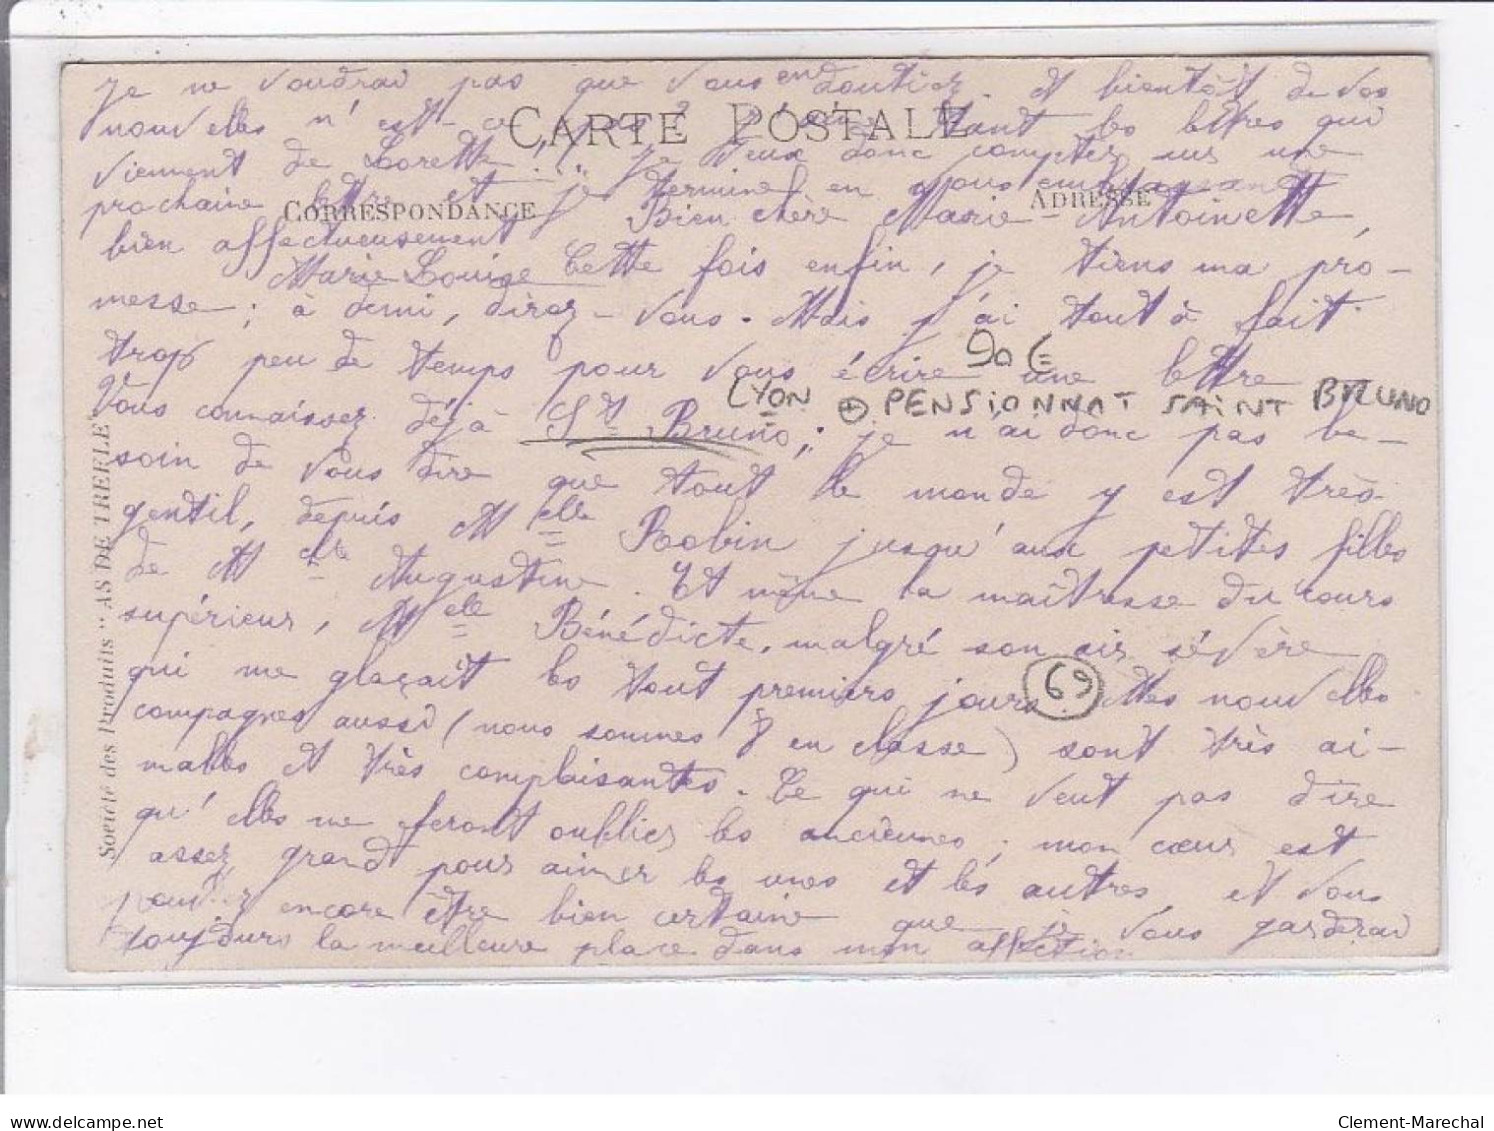 Je ne voudrai pas que vous en doutiez. Et bientôt de vos
nouvelles n'est-ce pas? J'aime tant les lettres qui
CARTE POSTALE
viennent de Lorette! Je veux donc compter sur une
prochaine lettre et je termine en vous embrassant
CORRESPONDANCE
ADRESSE
bien affectueusement
Marie Louise
Bien chère Marie-Antoinette,
Cette fois enfin, je tiens ma pro-
messe; à demi, direz-vous. Mais j'ai tout à fait
trop peu de temps pour vous écrire une lettre
90€
LYON ⊕ PENSIONNAT SAINT BRUNO
Vous connaissez déjà St Bruno; je n'ai donc pas be-
soin de vous dire que tout le monde y est très
gentil, depuis Melle Robin jusqu'aux petites filles
de M Augustine. Et même la maîtresse du cours
supérieur, Melle Bénédicte, malgré son air sévère
qui me glaçait les tout premiers jours. Mes nouvelles
69
compagnes aussi (nous sommes 8 en classe) sont très ai-
mables et très complaisantes. Ce qui ne veut pas dire
qu'elles me feront oublier les anciennes; mon cœur est
assez grand pour aimer les unes et les autres, et vous
pouvez encore être bien certaine que je vous garderai
toujours la meilleure place dans mon affection
Société des Produits "AS DE TREFLE"
Clement-Marechal
www.delcampe.net